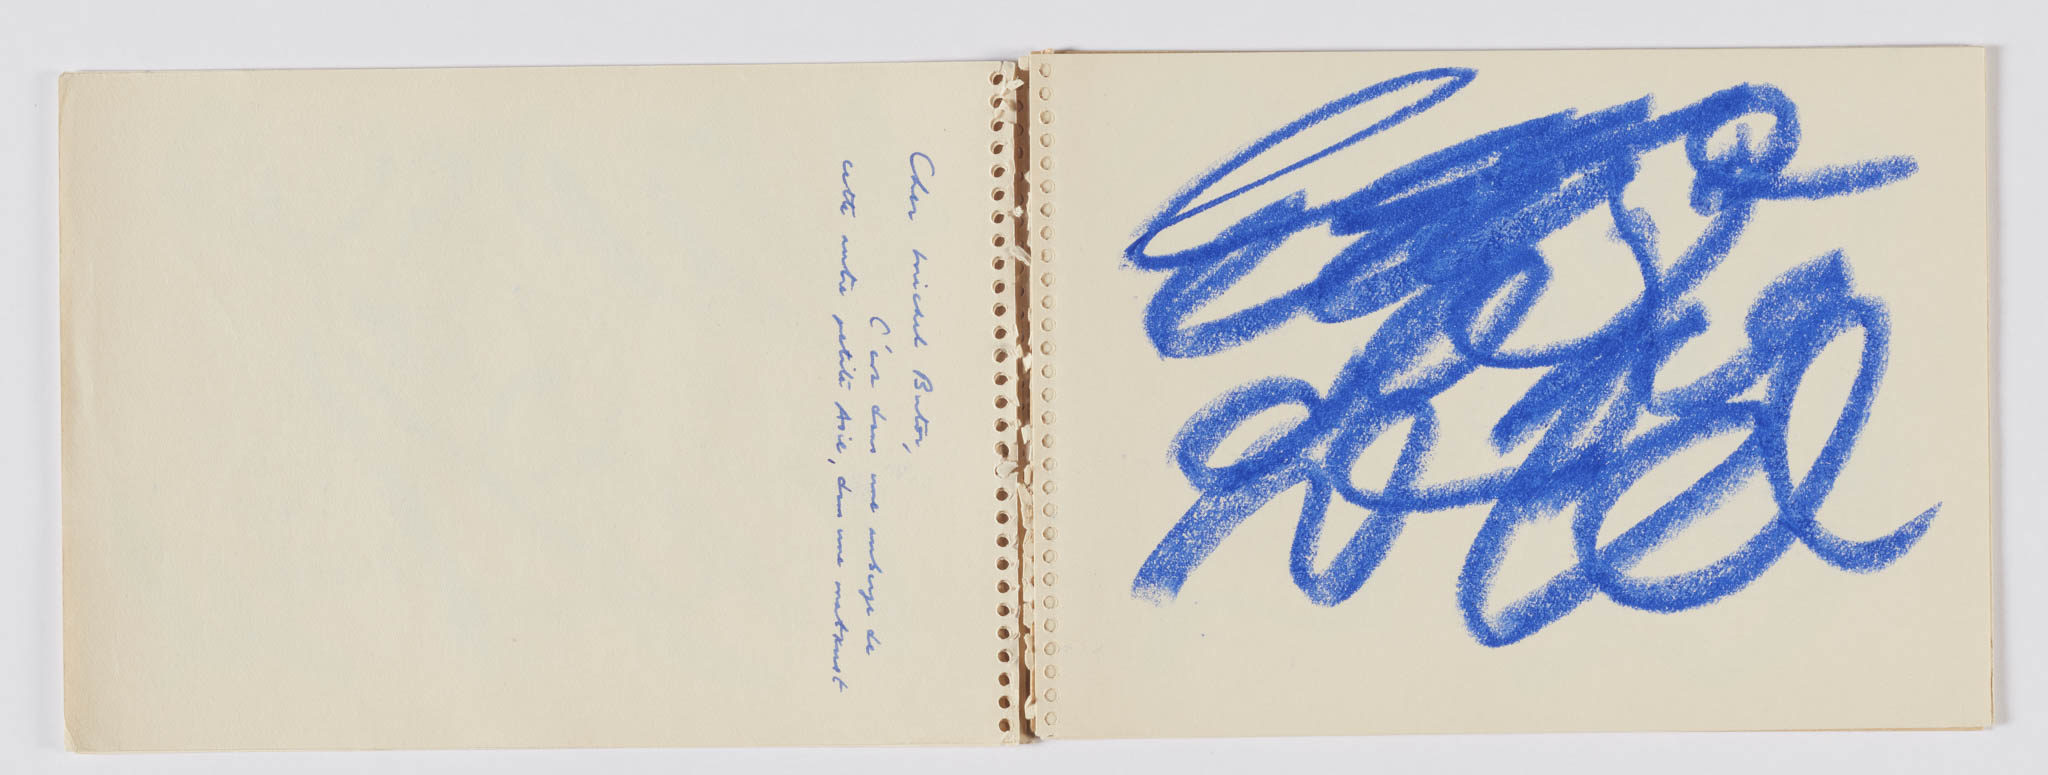 Cher Michel Butor,
C'est dans une auberge de
cette autre petite Asie, dans une